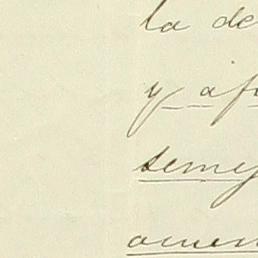 la de
y af
semej
amen